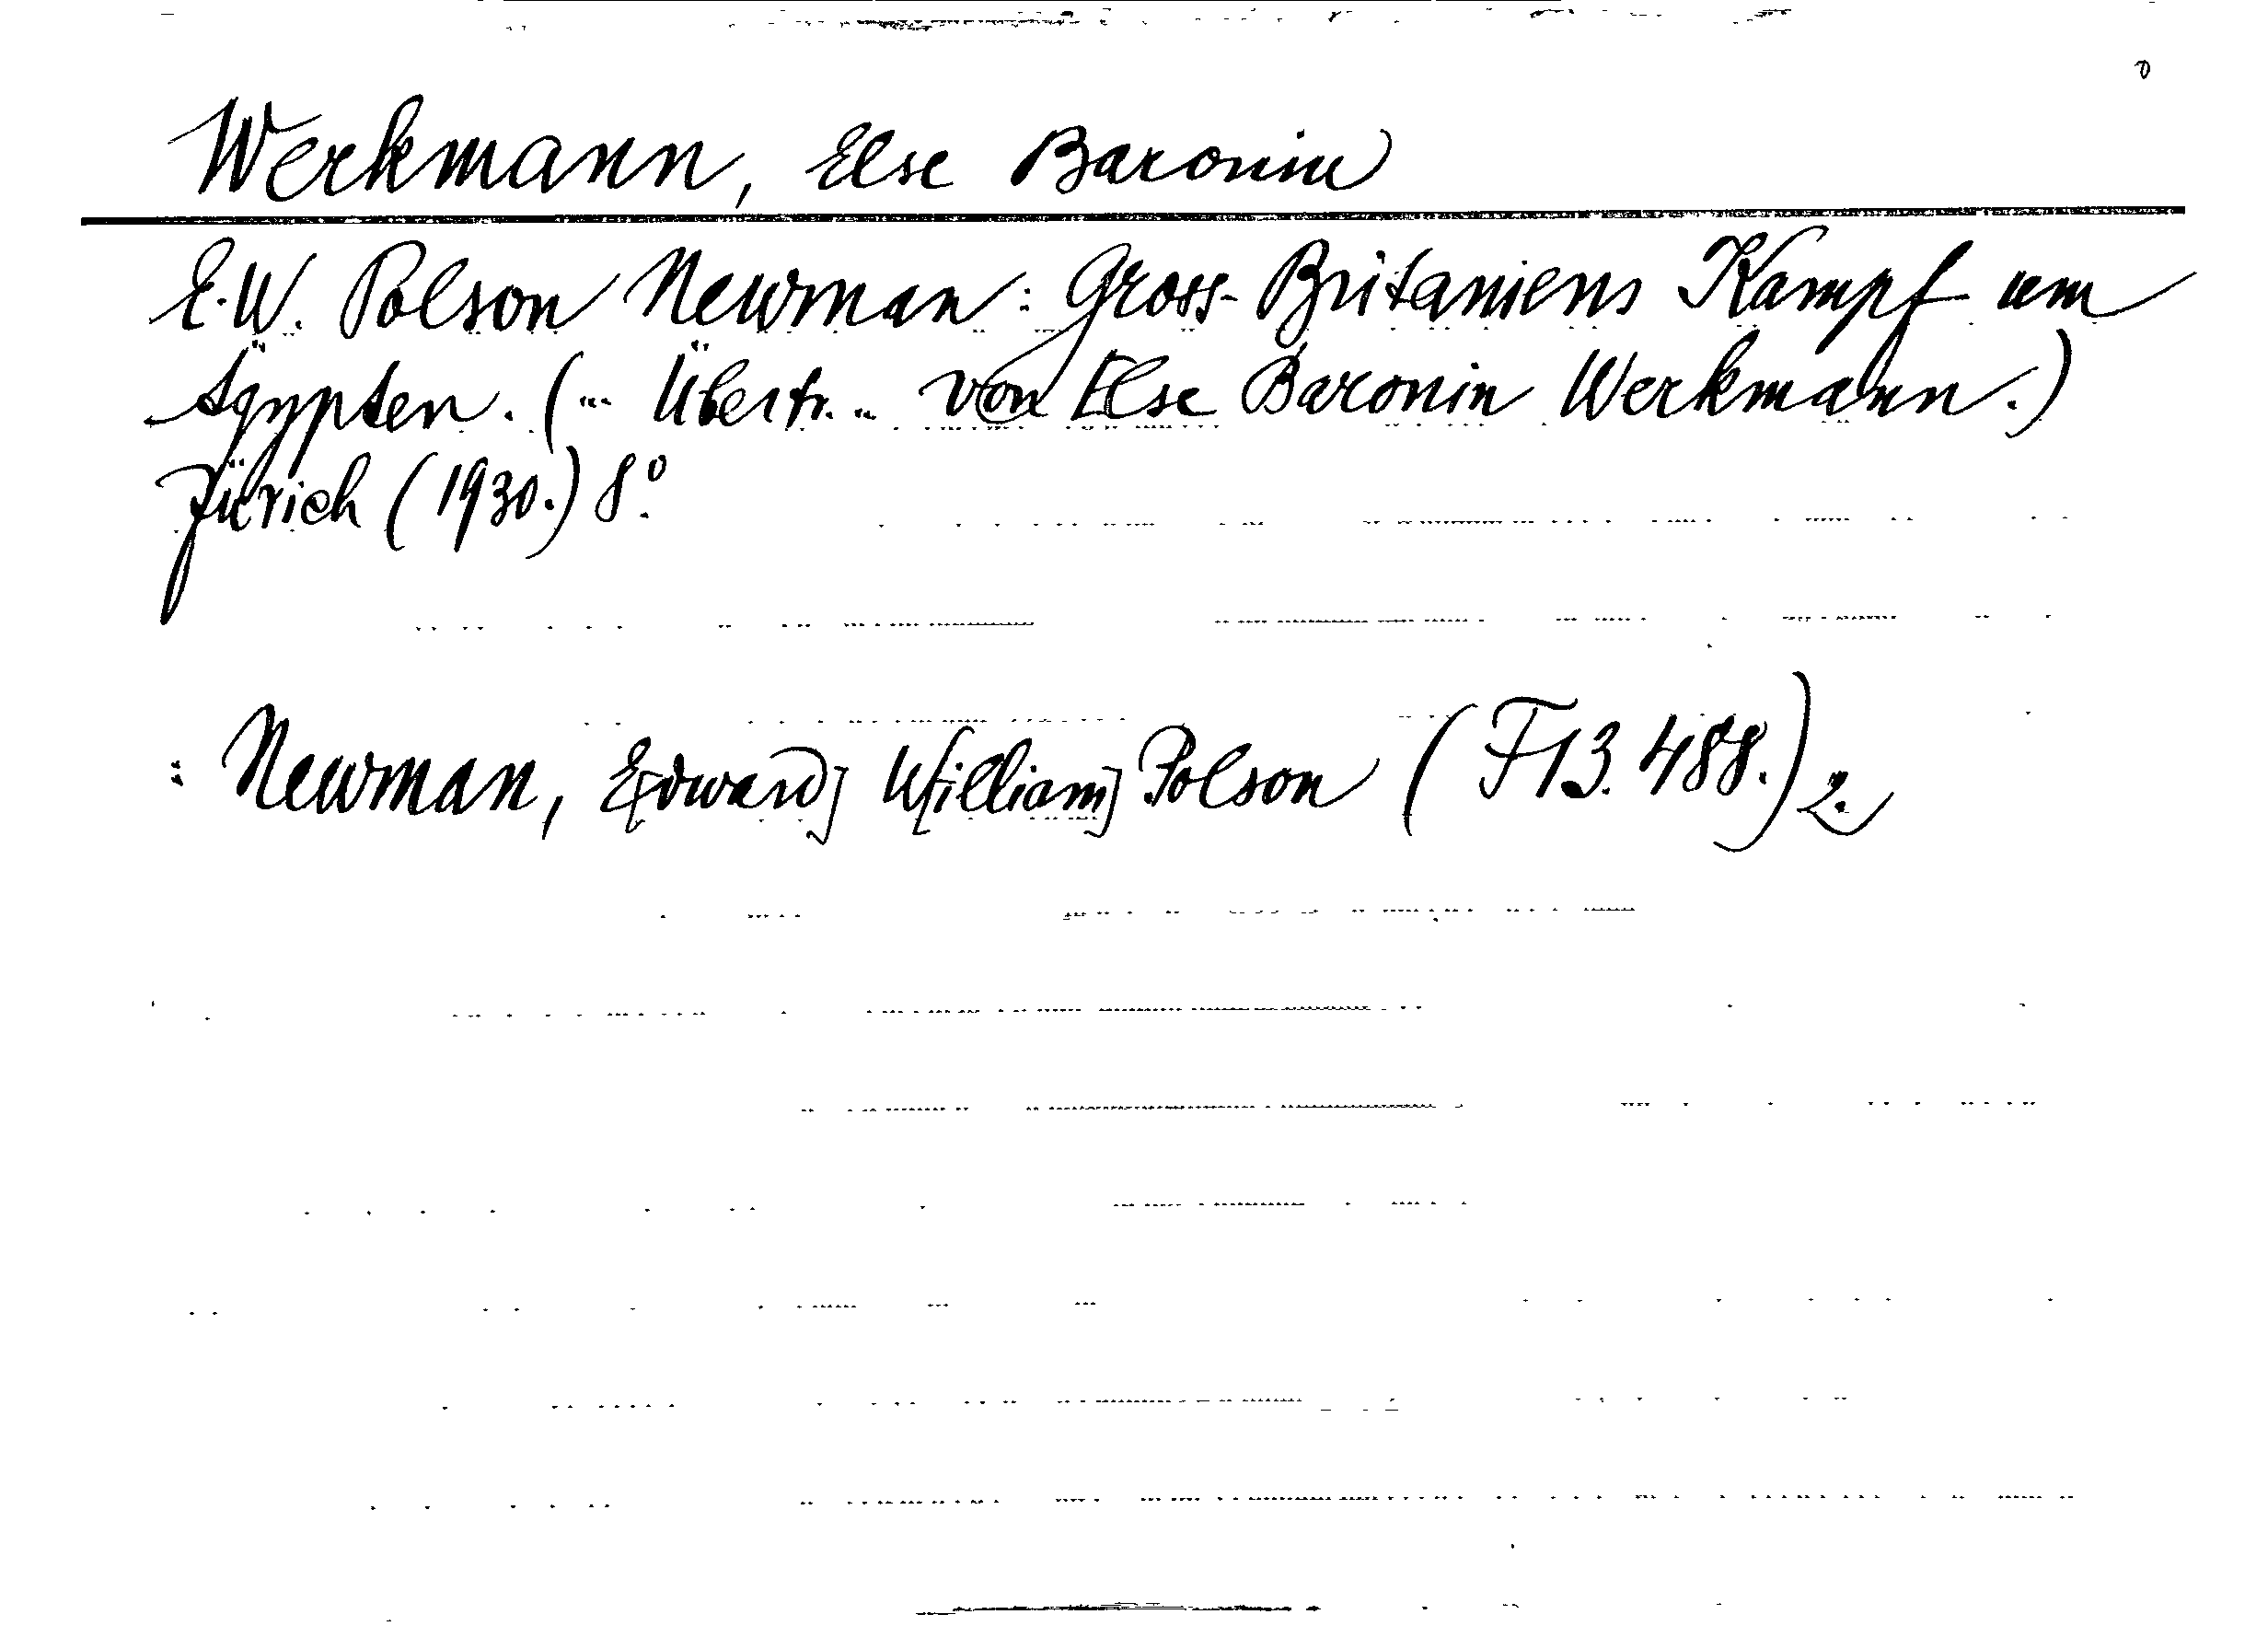 Werkmann, Else Baronin
E. W. Polson Newman: Gross-Britaniens Kampf um
Ägypten. (... Übertr... von Else Baronin Werkmann.)
Zürich (1930.) 8°.
: Newman, E[dward] W[illiam] Polson (F13.488.) 2.